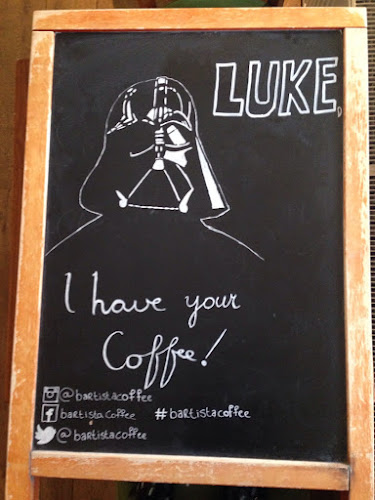 LUKE,
I have your
Coffee!
@bartistacoffee
f bartistacoffee #bartistacoffee
@bartistacoffee